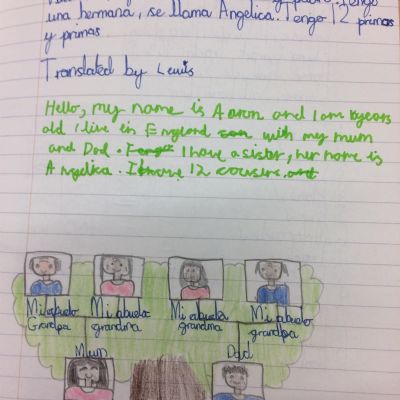 una hermana, se llama Angelica. Tengo 12 primos
y primas
Translated by Lewis
Hello, my name is Aaron and I am
old I live in England with my mum
and Dad. I have a sister, her name is
Angelica. I have 12 cousins.
Mi abuelo Mi abuela Mi abuela Mi abuelo
Grandpa grandma grandma grandpa
Mum Dad